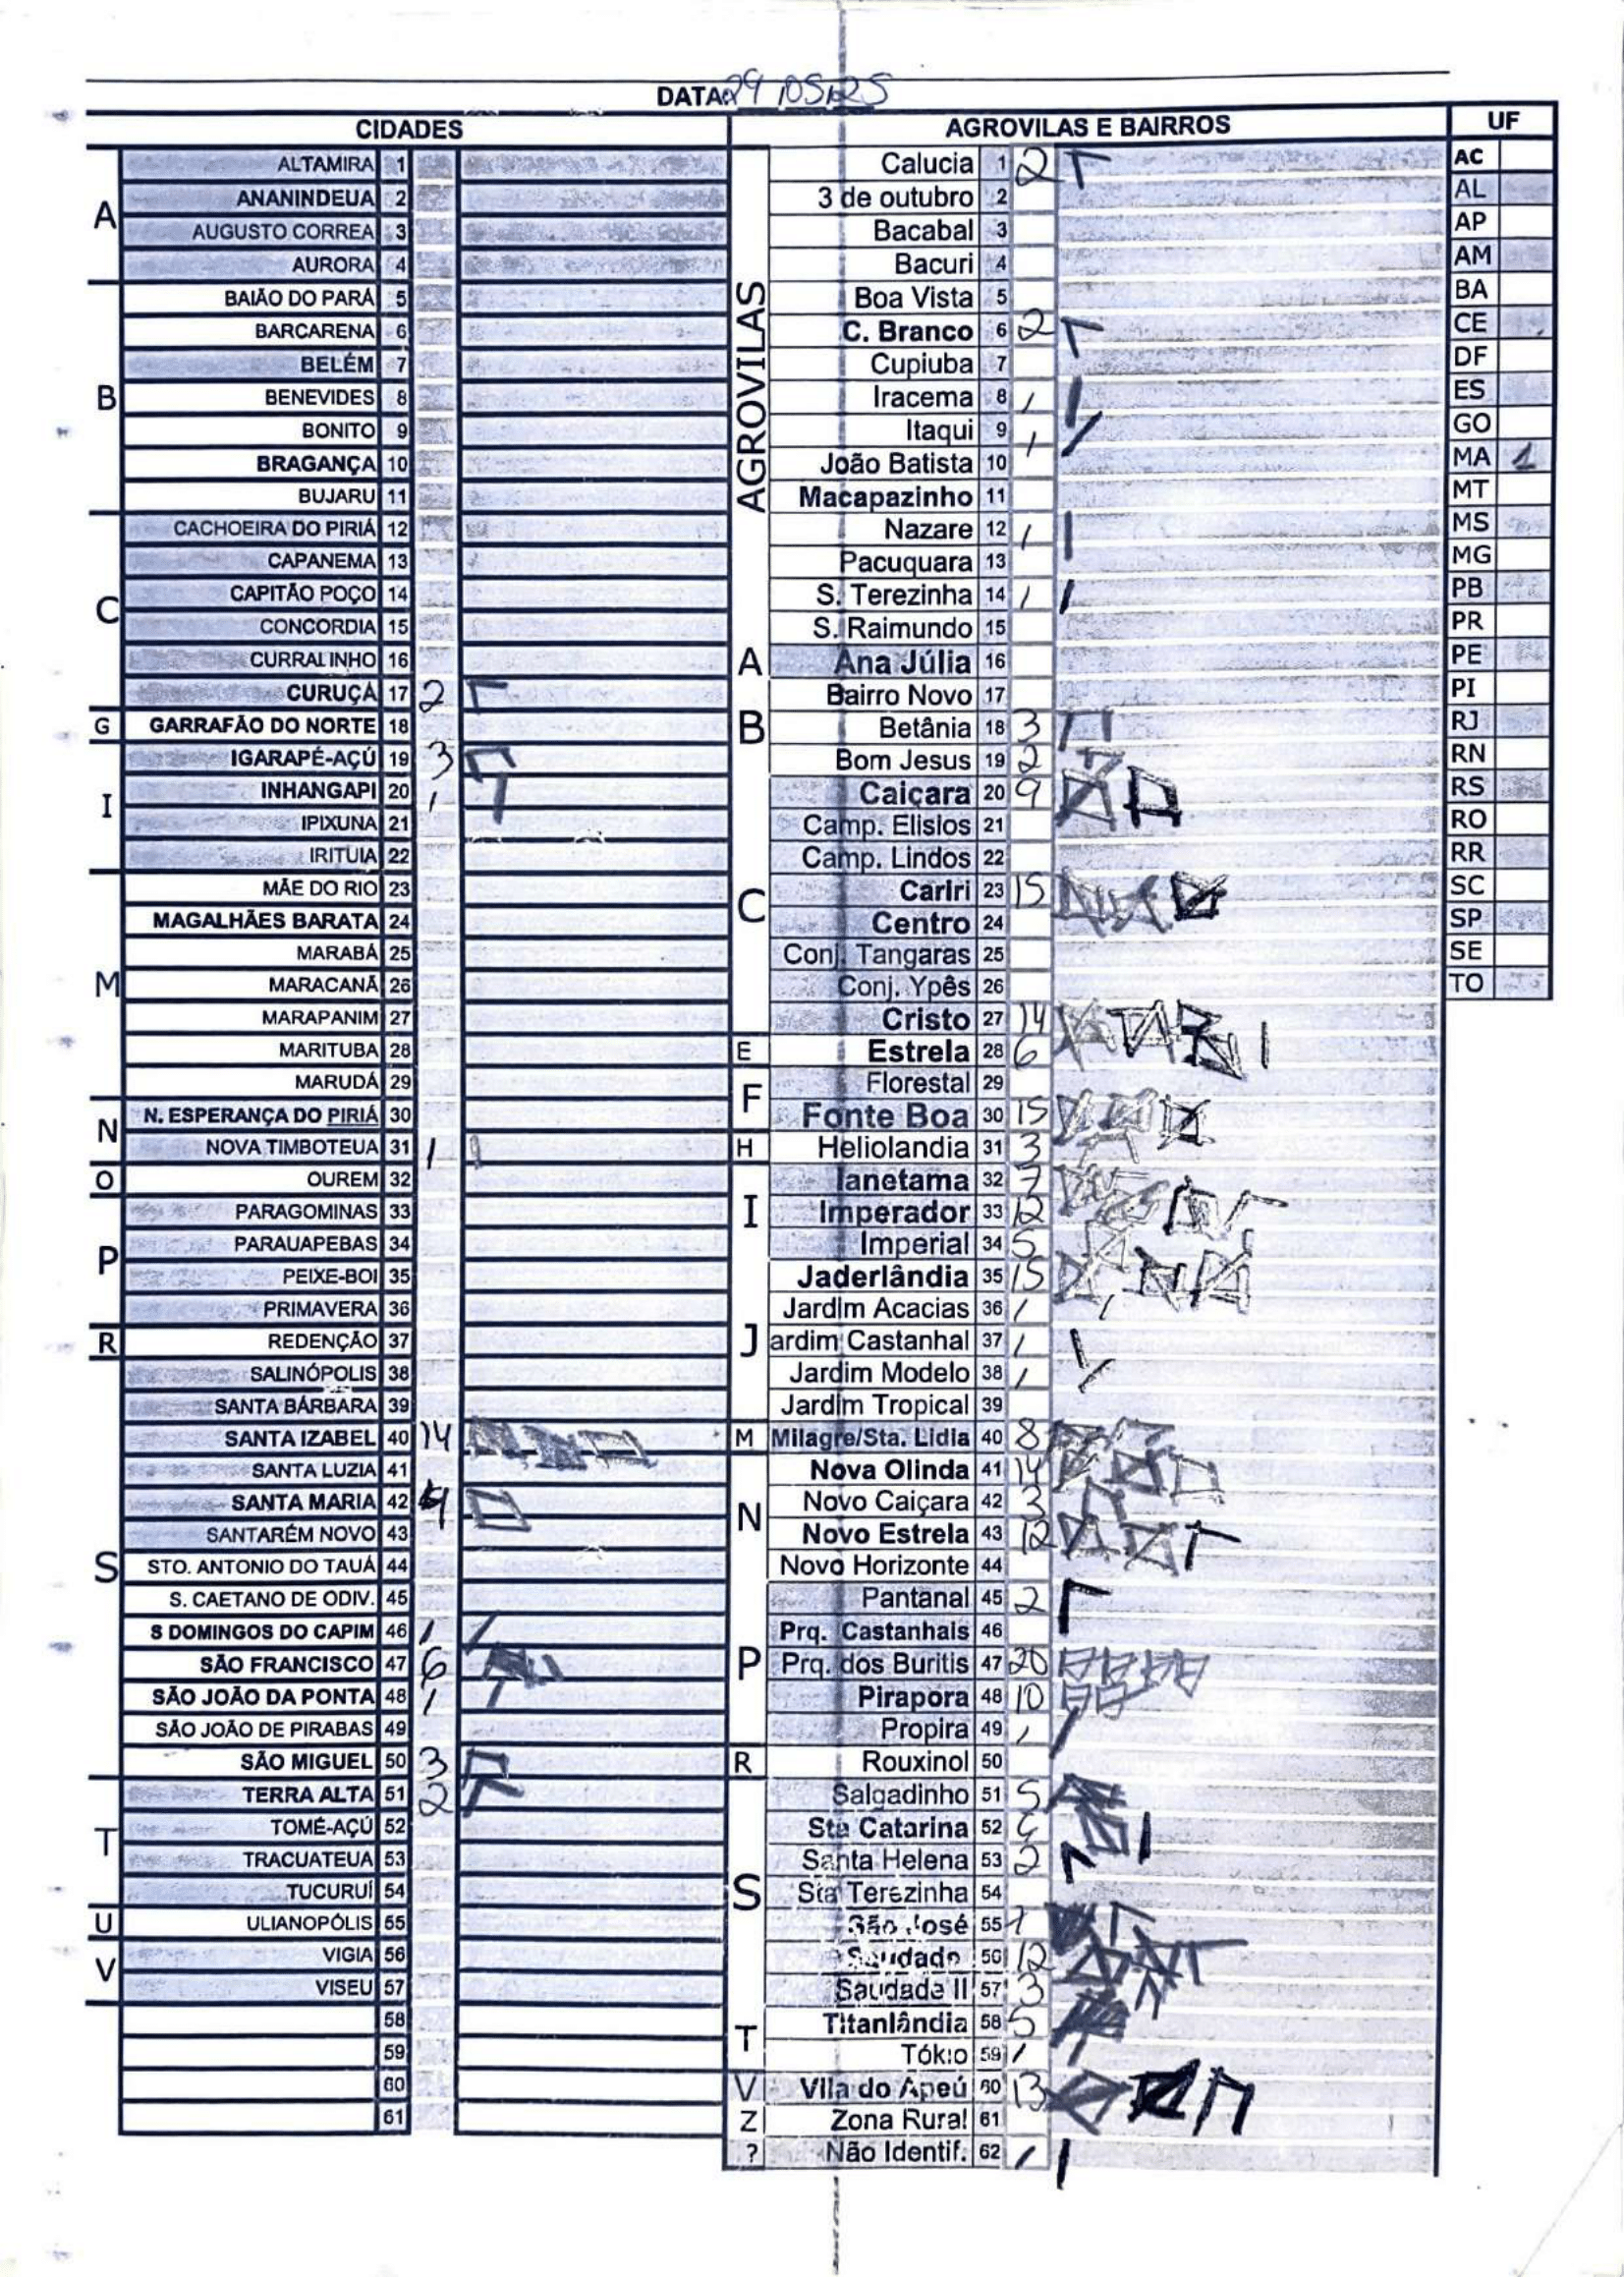 DATA: 29/05/25
CIDADES
A
ALTAMIRA 1
ANANINDEUA 2
AUGUSTO CORREA 3
AURORA 4
B
BAIÃO DO PARÁ 5
BARCARENA 6
BELÉM 7
BENEVIDES 8
BONITO 9
BRAGANÇA 10
BUJARU 11
C
CACHOEIRA DO PIRIÁ 12
CAPANEMA 13
CAPITÃO POÇO 14
CONCORDIA 15
CURRALINHO 16
CURUÇÁ 17 2
G
GARRAFÃO DO NORTE 18
I
IGARAPÉ-AÇÚ 19 3
INHANGAPI 20 1
IPIXUNA 21
IRITUIA 22
M
MÃE DO RIO 23
MAGALHÃES BARATA 24
MARABÁ 25
MARACANÃ 26
MARAPANIM 27
MARITUBA 28
MARUDÁ 29
N
N. ESPERANÇA DO PIRIÁ 30
NOVA TIMBOTEUA 31 1
O
OUREM 32
P
PARAGOMINAS 33
PARAUAPEBAS 34
PEIXE-BOI 35
PRIMAVERA 36
R
REDENÇÃO 37
S
SALINÓPOLIS 38
SANTA BÁRBARA 39
SANTA IZABEL 40 14
SANTA LUZIA 41
SANTA MARIA 42 4
SANTARÉM NOVO 43
STO. ANTONIO DO TAUÁ 44
S. CAETANO DE ODIV. 45
S DOMINGOS DO CAPIM 46 1
SÃO FRANCISCO 47 6
SÃO JOÃO DA PONTA 48 1
SÃO JOÃO DE PIRABAS 49
SÃO MIGUEL 50 3
T
TERRA ALTA 51 2
TOMÉ-AÇÚ 52
TRACUATEUA 53
TUCURUÍ 54
U
ULIANOPÓLIS 55
V
VIGIA 56
VISEU 57
58
59
60
61
AGROVILAS E BAIRROS
AGROVILAS
Calucia 1 2
3 de outubro 2
Bacabal 3
Bacuri 4
Boa Vista 5
C. Branco 6 2
Cupiuba 7
Iracema 8 1
Itaqui 9 1
João Batista 10
Macapazinho 11
Nazare 12 1
Pacuquara 13
S. Terezinha 14 1
S. Raimundo 15
A
Ana Júlia 16
B
Bairro Novo 17
Betânia 18 3
Bom Jesus 19 2
C
Caiçara 20 9
Camp. Elisios 21
Camp. Lindos 22
Cariri 23 15
Centro 24
Conj. Tangaras 25
Conj. Ypês 26
Cristo 27 14
E
Estrela 28 6
F
Florestal 29
Fonte Boa 30 15
H
Heliolandia 31 3
I
Ianetama 32 7
Imperador 33 12
Imperial 34 5
J
Jaderlândia 35 15
Jardim Acacias 36 1
ardim Castanhal 37 1
Jardim Modelo 38 1
Jardim Tropical 39
M
Milagre/Sta. Lidia 40 8
N
Nova Olinda 41 14
Novo Caiçara 42 3
Novo Estrela 43 12
Novo Horizonte 44
P
Pantanal 45 2
Prq. Castanhais 46
Prq. dos Buritis 47 20
Pirapora 48 10
Propira 49 1
R
Rouxinol 50
S
Salgadinho 51 5
Sta Catarina 52
Santa Helena 53 2
Sta Terezinha 54
São José 55
Saudade 56 12
Saudade II 57 3
T
Titanlândia 58 5
Tókio 59 1
V
Vila do Apeú 60 13
Z
Zona Rural 61
?
Não Identif. 62 1
UF
AC
AL
AP
AM
BA
CE
DF
ES
GO
MA 1
MT
MS
MG
PB
PR
PE
PI
RJ
RN
RS
RO
RR
SC
SP
SE
TO